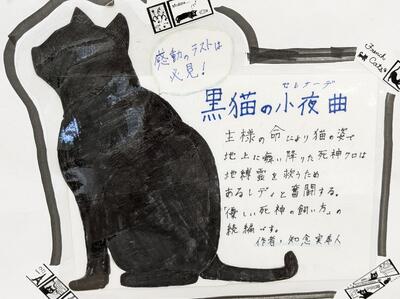 感動のラストは
必見!
セレナーデ
黒猫の小夜曲
主様の命により猫の姿で
地上に舞い降りた死神クロは
地縛霊を救うため
あるレディと奮闘する。
「優しい死神の飼い方」の
続編です。
作者:知念実希人
French
Cats